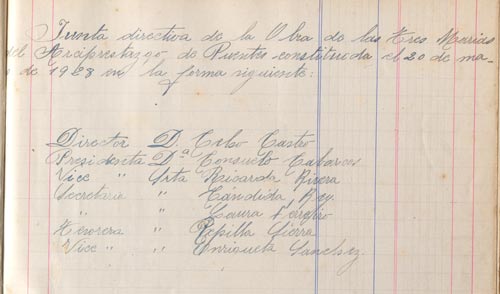 Junta directiva de la Obra de las tres Marias
del Arciprestazgo de Puentes constituida el 20 de ma-
o de 1928 en la forma siguiente:
Director D. Celso Castro
Presidenta Dª Consuelo Cabarcos
Vice " Srta Ricarda Rivera
Secretaria " Cándida Rey
" " Laura Ferreiro
Tesorera " Pepilla Sierra
Vice " " Enriqueta Sanchez